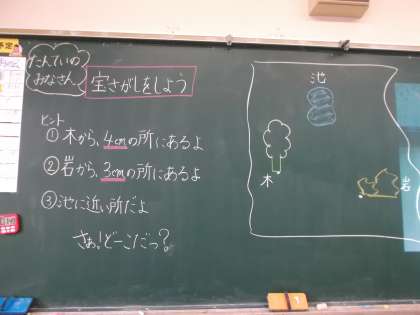 予定
たんていの
みなさん
宝さがしをしよう
ヒント
①木から、4cmの所にあるよ
②岩から、3cmの所にあるよ
③池に近い所だよ
さぁ!どーこだっ?
池
木
岩